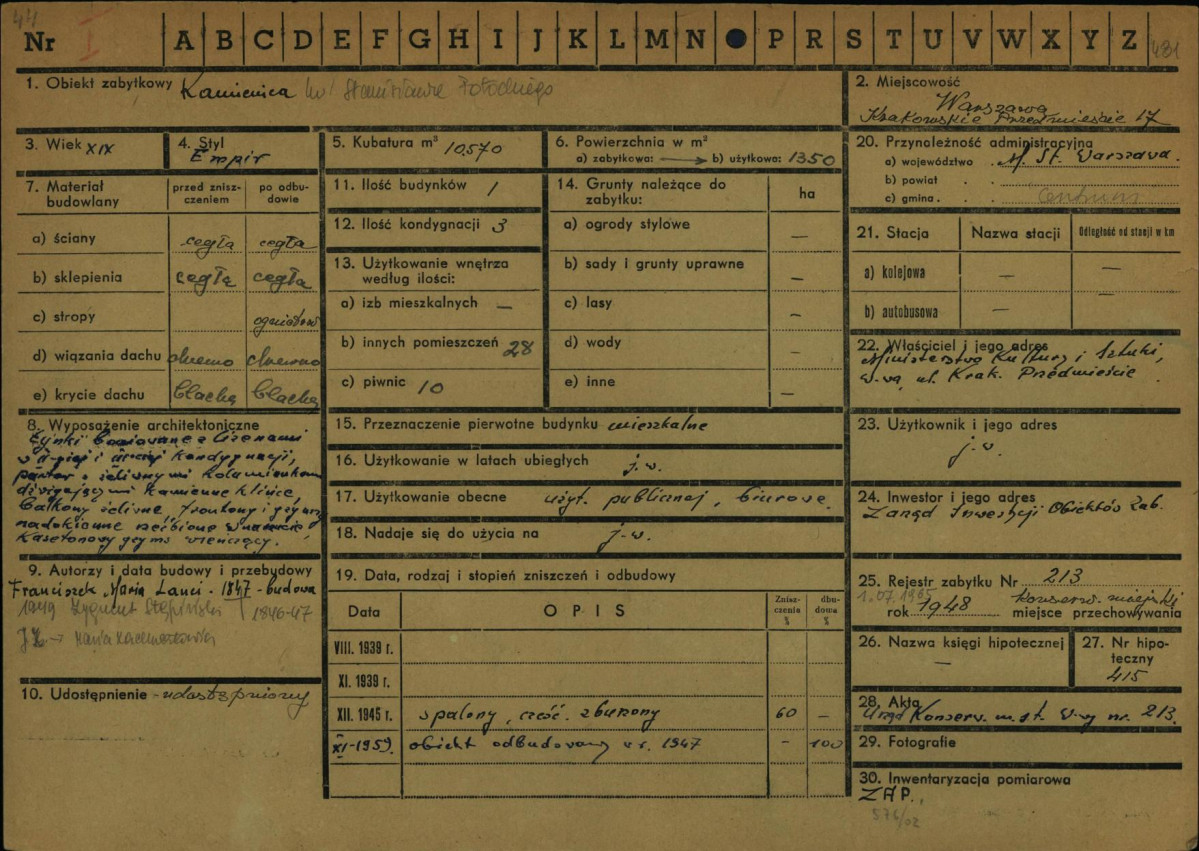 44
Nr I A B C D E F G H I J K L M N P R S T U V W X Y Z 431
1. Obiekt zabytkowy Kamienica
2. Miejscowość
Warszawa
Krakowskie Przedmieście 17
3. Wiek XIX
4. Styl
Empir
5. Kubatura m³ 10570
6. Powierzchnia w m²
a) zabytkowa: b) użytkowa: 1350
20. Przynoleżność administracyjna
a) województwo . M. St. Warszawa.
b) powiat . .
c) gmina . . Centrum
7. Materiał budowlany
przed zniszczeniem
po odbudowie
a) ściany cegła cegła
b) sklepienia cegła cegła
c) stropy
d) wiązania dachu drewno drewno
e) krycie dachu blacha blacha
11. Ilość budynków 1
12. Ilość kondygnacji 3
13. Użytkowanie wnętrza
według ilości:
a) izb mieszkalnych —
b) innych pomieszczeń 28
c) piwnic 10
14. Grunty należące do
zabytku:
ha
a) ogrody stylowe —
b) sady i grunty uprawne —
c) lasy —
d) wody —
e) inne —
21. Stacja Nazwa stacji Odległość od stacji w km
a) kolejowa — —
b) autobusowa — —
22. Właściciel i jego adres
Ministerstwo Kultury i Sztuki,
W-wa, ul. Krak. Przedmieście
8. Wyposażenie architektoniczne
Tynki boniowane z lizenami
w II-giej i III-ciej kondygnacji,
parter z żeliwnymi kolumienkami
dźwigającymi kamienne klińce,
balkony żeliwne, frontony i gzymsy
nadokienne rzeźbione w
Kasetonowy gzyms wieńczący.
15. Przeznaczenie pierwotne budynku mieszkalne
16. Użytkowanie w latach ubiegłych j.w.
17. Użytkowanie obecne użyt. publicznej, biurowe
18. Nadaje się do użycia na j-w.
23. Użytkownik i jego adres
j.w.
24. Inwestor i jego adres
Zarząd Inwestycji Obiektów Zab.
9. Autorzy i data budowy i przebudowy
Franciszek Maria Lanci - 1847 - budowa
1949 Zygmunt Stępiński 1846-47
10. Udostępnienie - udostępniony
19. Data, rodzaj i stopień zniszczeń i odbudowy
Data OPIS Zniszczenia % dbudowa %
VIII. 1939 r.
XI. 1939 r.
XII. 1945 r. spalony, część. zburzony 60 —
XI-1959. obiekt odbudowany w r. 1947 - 100
25. Rejestr zabytku Nr 213
1.07.1965 konserw. miejski
rok 1948 miejsce przechowywania
26. Nazwa księgi hipotecznej
—
27. Nr hipoteczny
415
28. Akta
Urząd Konserw. m. st. W-wy nr. 213.
29. Fotografie
30. Inwentaryzacja pomiarowa
ZAP.